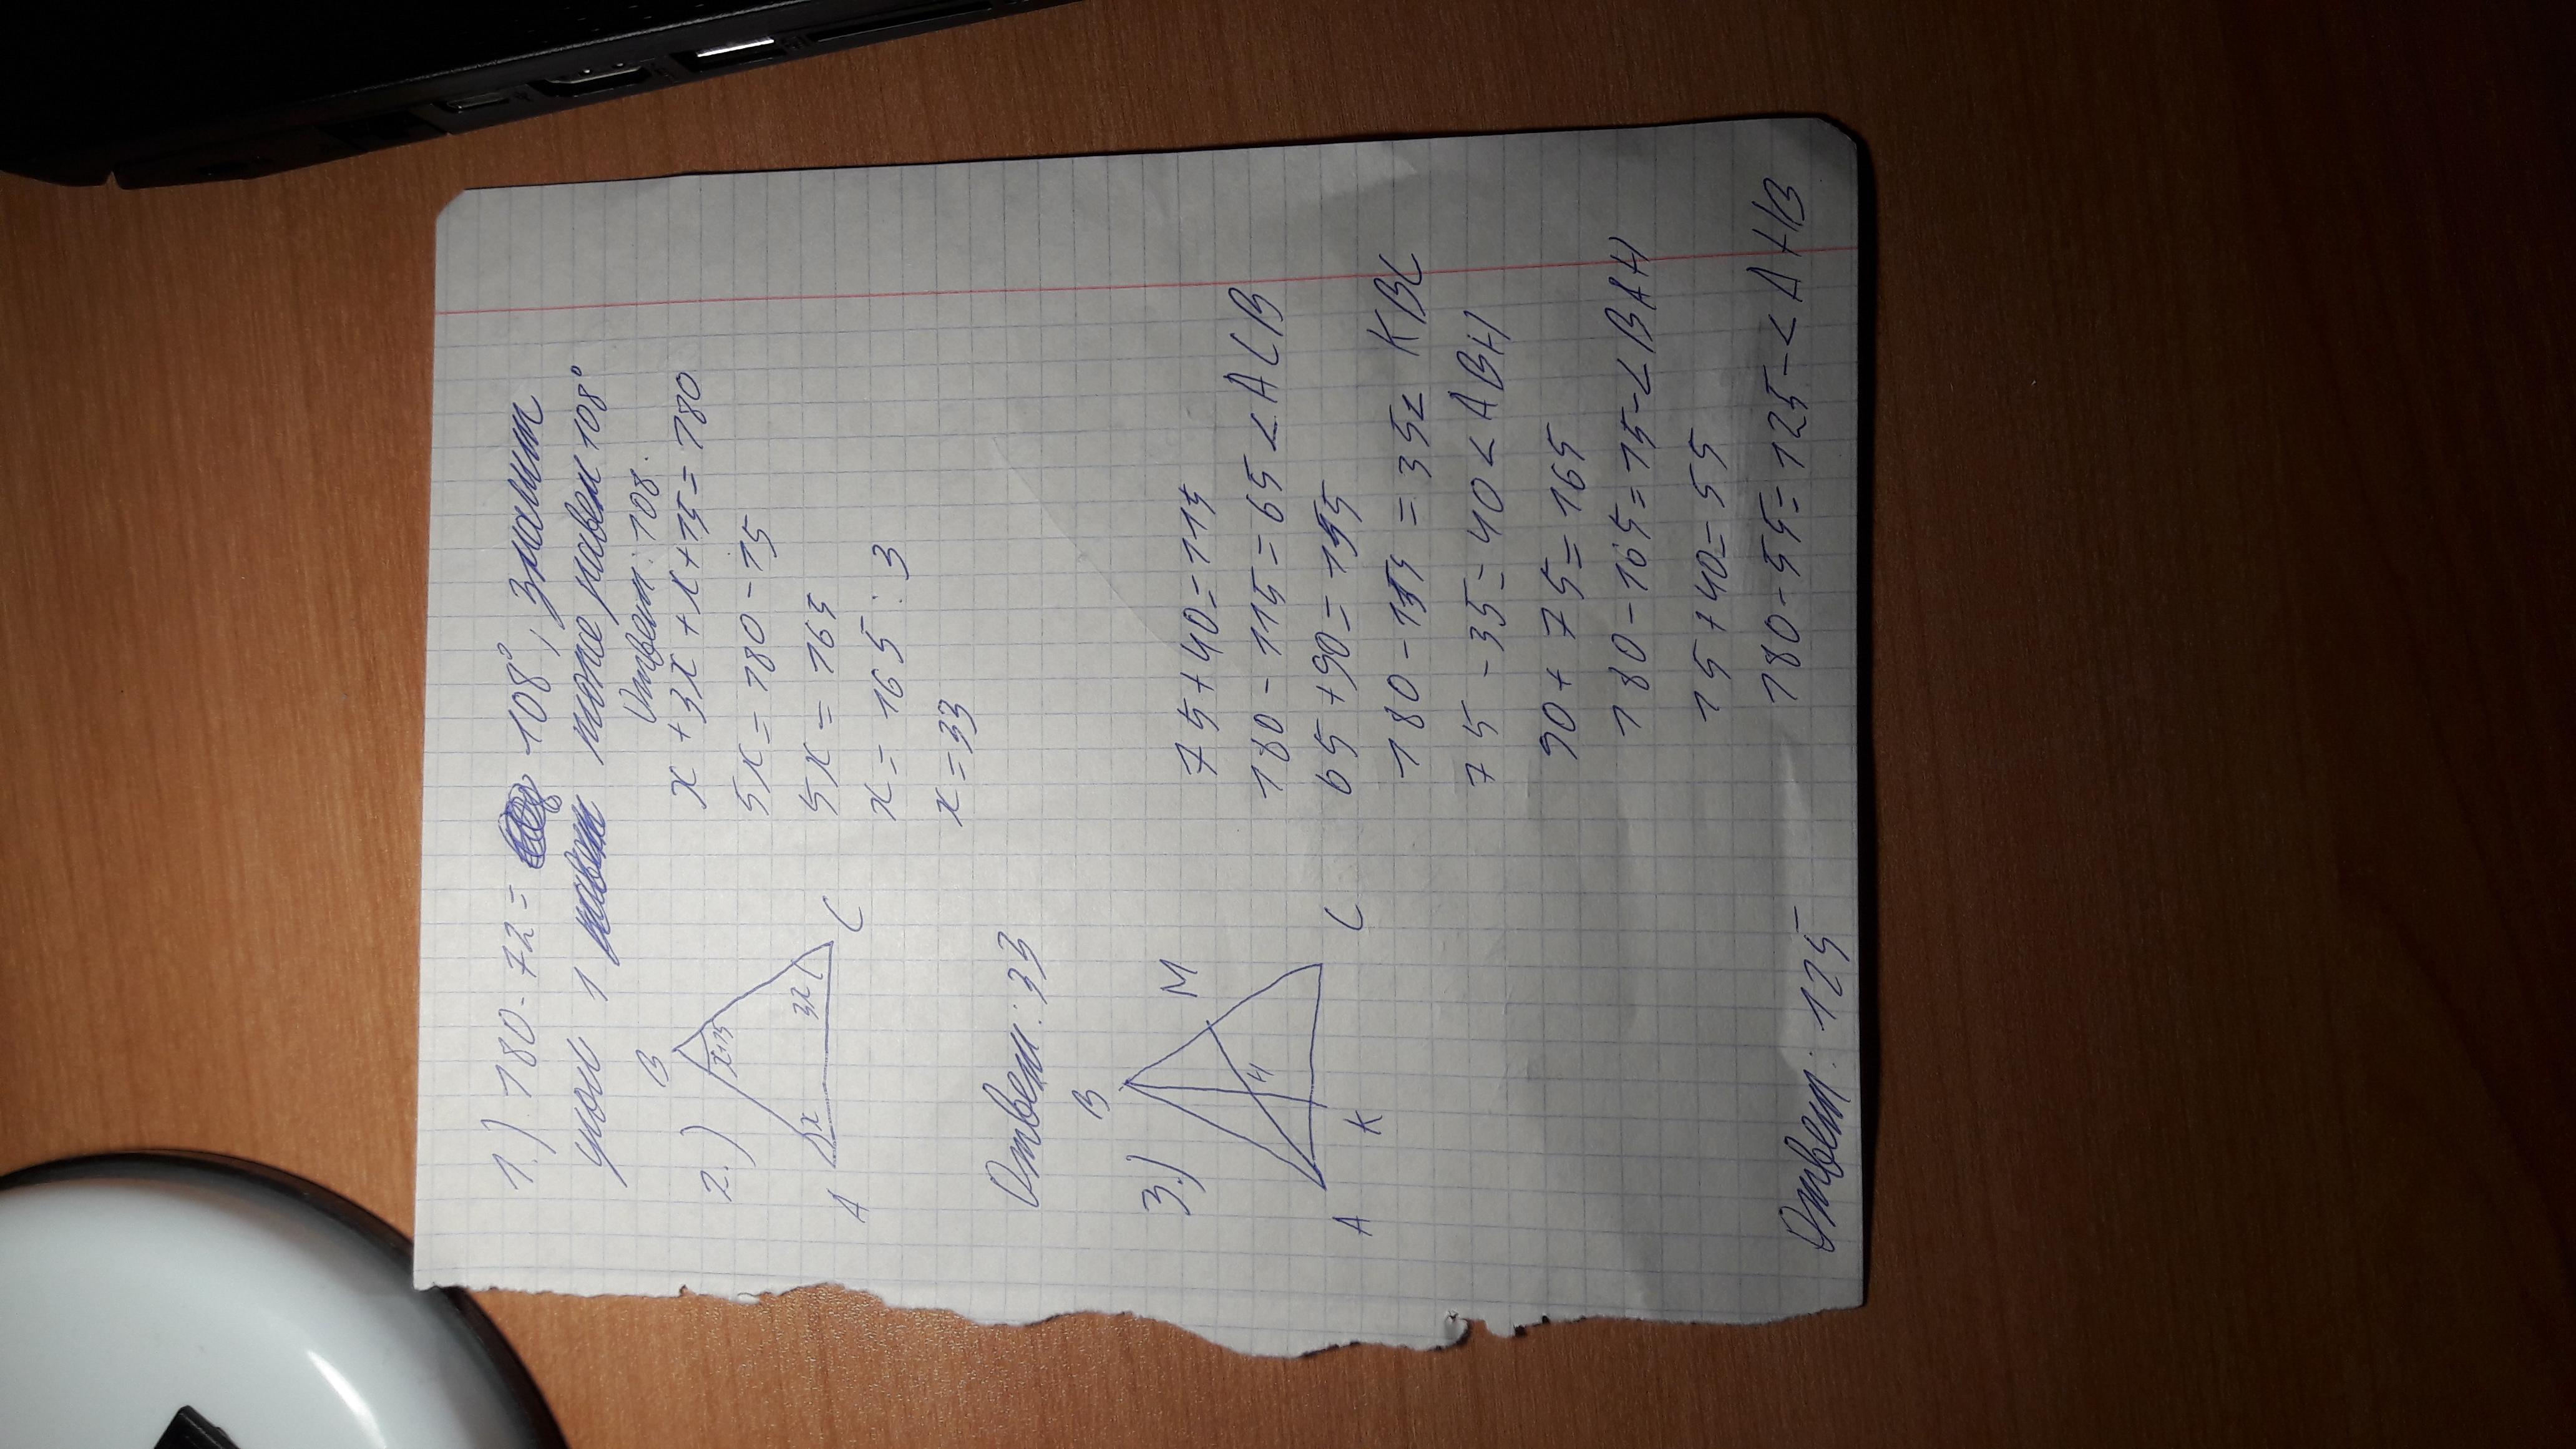 1.) 180-72= 108°, значит
угол 1 равен тоже равен 108°
Ответ: 108.
2.) B x + 3x + x + 15 = 180
x+15
5x = 180 - 15
x 3x
5x = 165
A C
x = 165 : 3
x = 33
Ответ: 33
3.) B M
75 + 40 = 115
180 - 115 = 65 < ACB
H
65 + 90 = 155
A K C
180 - 155 = 35 < KBC
75 - 35 = 40 < ABH
90 + 75 = 165
180 - 165 = 15 - < BAH
15 + 40 = 55
180 - 55 = 125 - < AHB
Ответ: 125